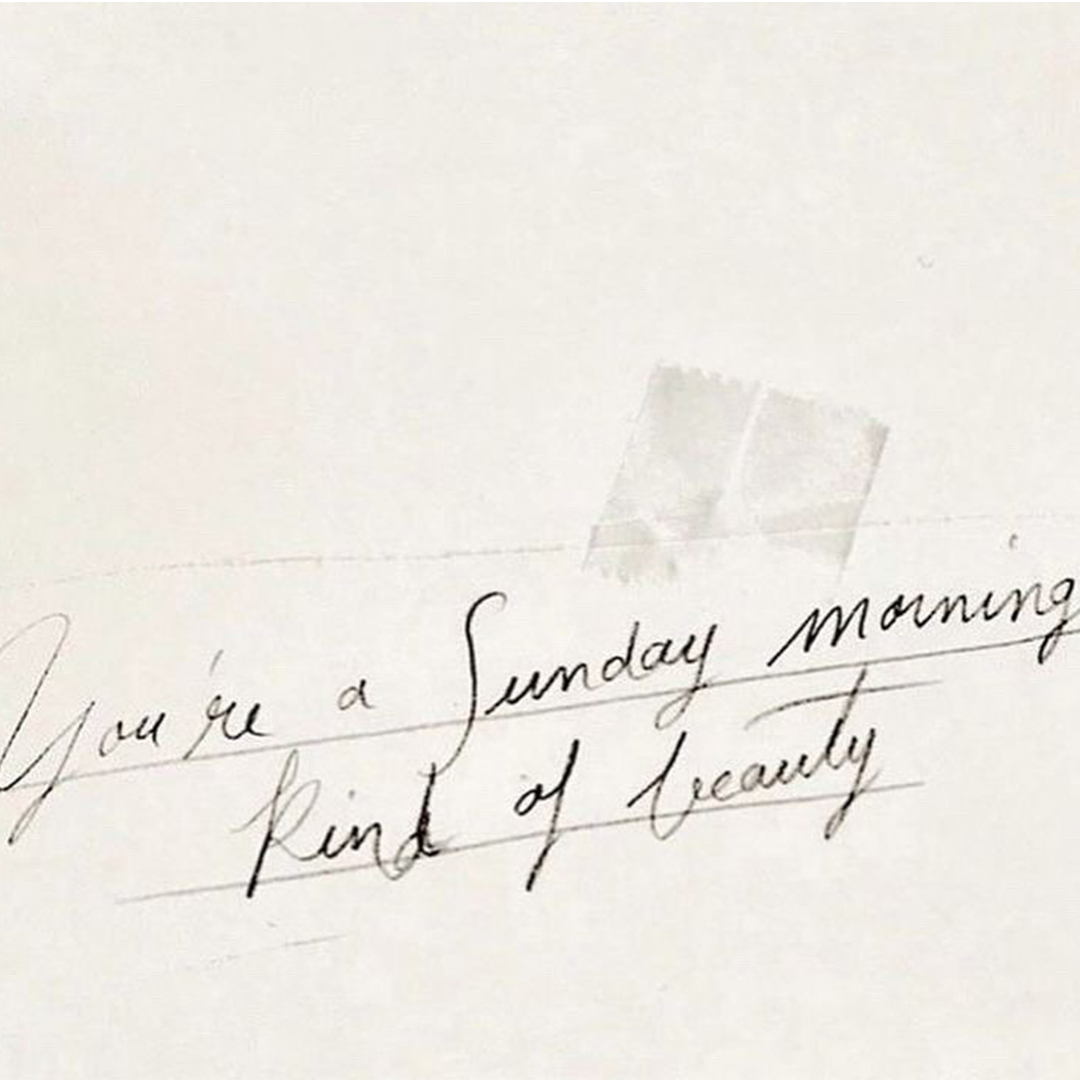 You're a Sunday morning
kind of beauty